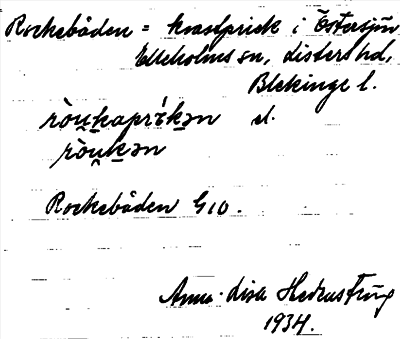 Rockebåden = kvastprick i Östersjön
Elleholms sn, Listers hd,
Blekinge l.
ròu̯kaprìkən el.
ròu̯kən
Rockebåden G10.
Anna-Lisa Hedenström
1934.